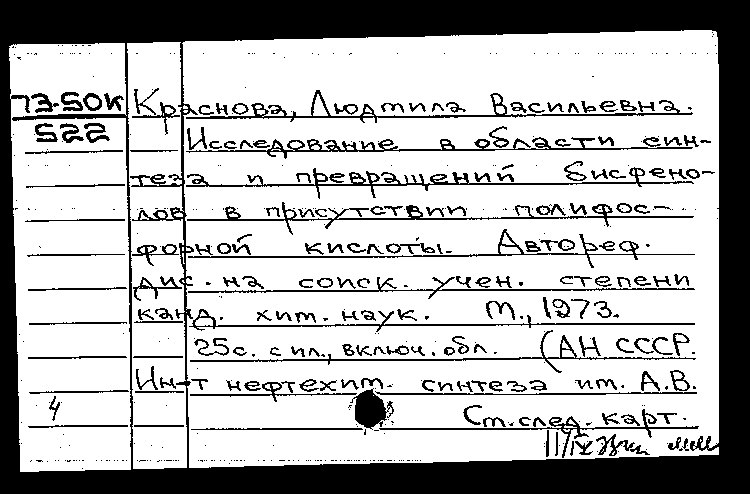 73-50К Краснова, Людмила Васильевна.
522 Исследование в области син-
теза и превращений бисфено-
лов в присутствии полифос-
форной кислоты. Автореф.
дис. на соиск. учен. степени
канд. хим. наук. М., 1973.
25с. с ил., включ. обл. (АН СССР.
Ин-т нефтехим. синтеза им. А.В.
4 См. след. карт.
11/IV